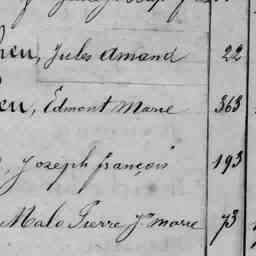 Jules Amand 22
Edmont Marie 363
Joseph françois 193
Malo Pierre Jn marie 73